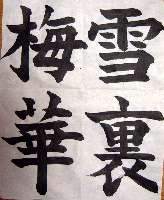 雪裏
梅華